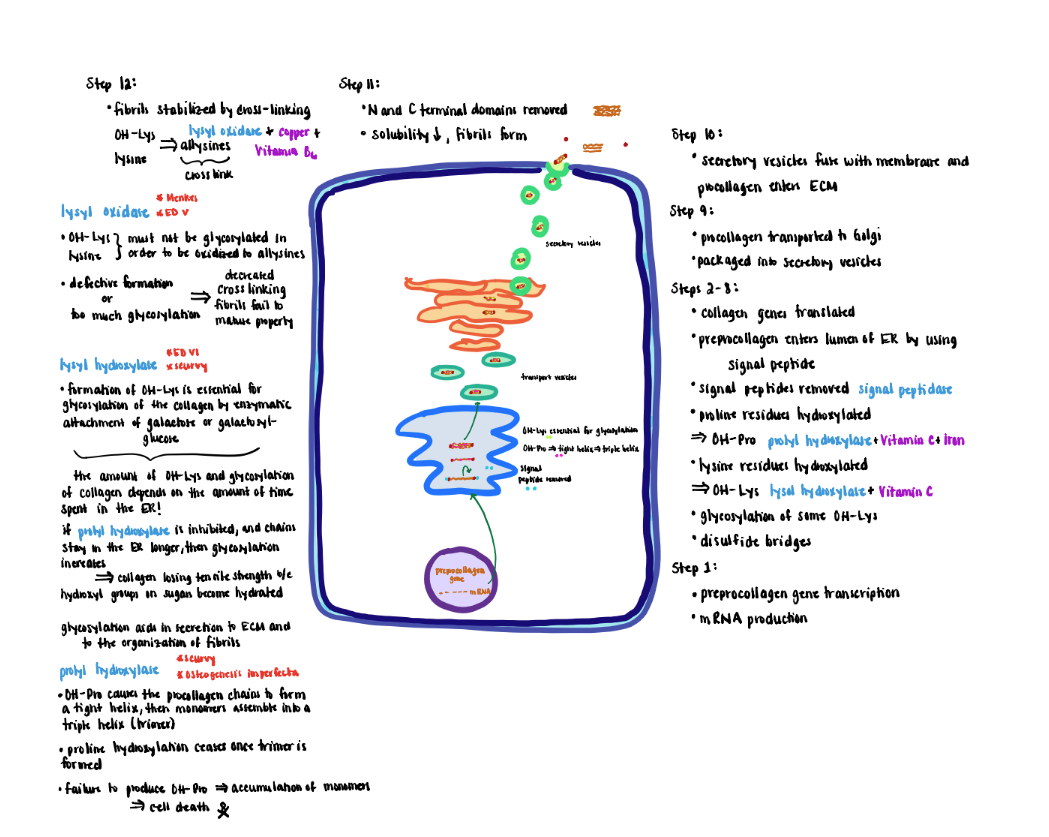 Step 12:
• fibrils stabilized by cross-linking
OH-Lys
lysine
⇒ allysines
lysyl oxidase + copper +
Vitamin B6
cross link
lysyl oxidase
* Menkes
* ED V
• OH-Lys } must not be glycosylated in
lysine } order to be oxidized to allysines
• defective formation
or
too much glycosylation
⇒
decreased
cross linking
fibrils fail to
mature properly
lysyl hydroxylase
* ED VI
* scurvy
• formation of OH-Lys is essential for
glycosylation of the collagen by enzymatic
attachment of galactose or galactosyl-
glucose
the amount of OH-Lys and glycosylation
of collagen depends on the amount of time
spent in the ER!
if prolyl hydroxylase is inhibited, and chains
stay in the ER longer, then glycosylation
increates
⇒ collagen losing tensile strength b/c
hydroxyl groups on sugar become hydrated
glycosylation aids in secretion to ECM and
to the organization of fibrils
prolyl hydroxylase
* scurvy
* osteogenesis imperfecta
• OH-Pro causes the procollagen chains to form
a tight helix, then monomers assemble into a
triple helix (trimer)
• proline hydroxylation ceases once trimer is
formed
• failure to produce OH-Pro ⇒ accumulation of monomers
⇒ cell death
Step 11:
• N and C terminal domains removed
• solubility ↓, fibrils form
secretory vesicles
transport vesicles
OH-Lys essential for glycosylation
OH-Pro ⇒ tight helix ⇒ triple helix
signal
peptide removed
preprocollagen
gene
mRNA
Step 10:
• secretory vesicles fuse with membrane and
procollagen enters ECM
Step 9:
• procollagen transported to Golgi
• packaged into secretory vesicles
Steps 2-8:
• collagen genes translated
• preprocollagen enters lumen of ER by using
signal peptide
• signal peptides removed signal peptidase
• proline residues hydroxylated
⇒ OH-Pro prolyl hydroxylase + Vitamin C + iron
• lysine residues hydroxylated
⇒ OH-Lys lysol hydroxylase + Vitamin C
• glycosylation of some OH-Lys
• disulfide bridges
Step 1:
• preprocollagen gene transcription
• mRNA production